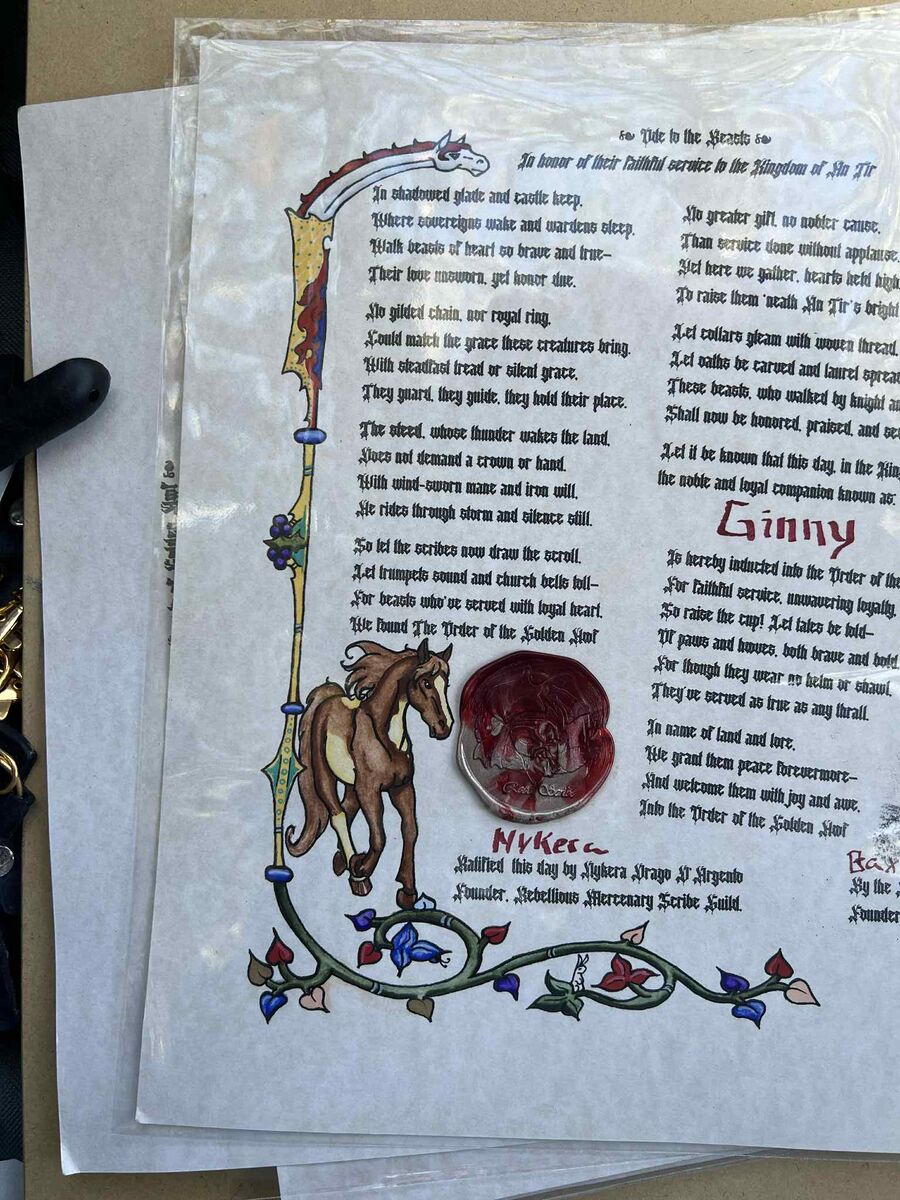 Ode to the Beasts
In honor of their faithful service to the Kingdom of An Tir
In shadowed glade and castle keep,
Where sovereigns wake and wardens sleep,
Walk beasts of heart so brave and true—
Their love unsworn, yet honor due.
No gilded chain, nor royal ring,
Could match the grace these creatures bring.
With steadfast tread or silent grace,
They guard, they guide, they hold their place.
The steed, whose thunder wakes the land,
Does not demand a crown or hand.
With wind-sworn mane and iron will,
He rides through storm and silence still.
So let the scribes now draw the scroll,
Let trumpets sound and church bells toll—
For beasts who've served with loyal heart,
We found The Order of the Golden Hoof
Nykera
Ratified this day by Nykera Drago D'Argento
Founder, Rebellious Mercenary Scribe Guild.
No greater gift, no nobler cause,
Than service done without applause.
Yet here we gather, hearts held high
To raise them 'neath An Tir's bright
Let collars gleam with woven thread,
Let oaths be carved and laurel spread
These beasts, who walked by knight
Shall now be honored, praised, and
Let it be known that this day, in the
the noble and loyal companion known as:
Ginny
Is hereby inducted into the Order of the
For faithful service, unwavering loyalty,
So raise the cup! Let tales be told—
Of paws and hooves, both brave and bold.
For though they wear no helm or shawl,
They've served as true as any thrall.
In name of land and lore,
We grant them peace forevermore—
And welcome them with joy and awe,
Into the Order of the Golden Hoof
Bax
By the
Founder